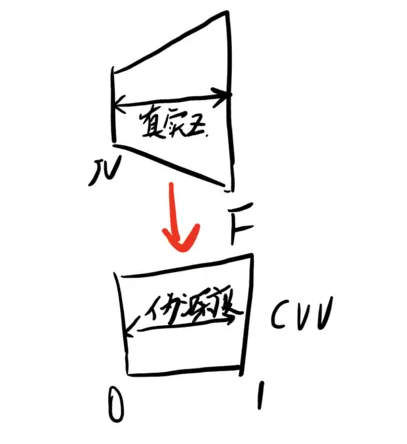 真实Z.
N
F
伪深度
CVV
0
1